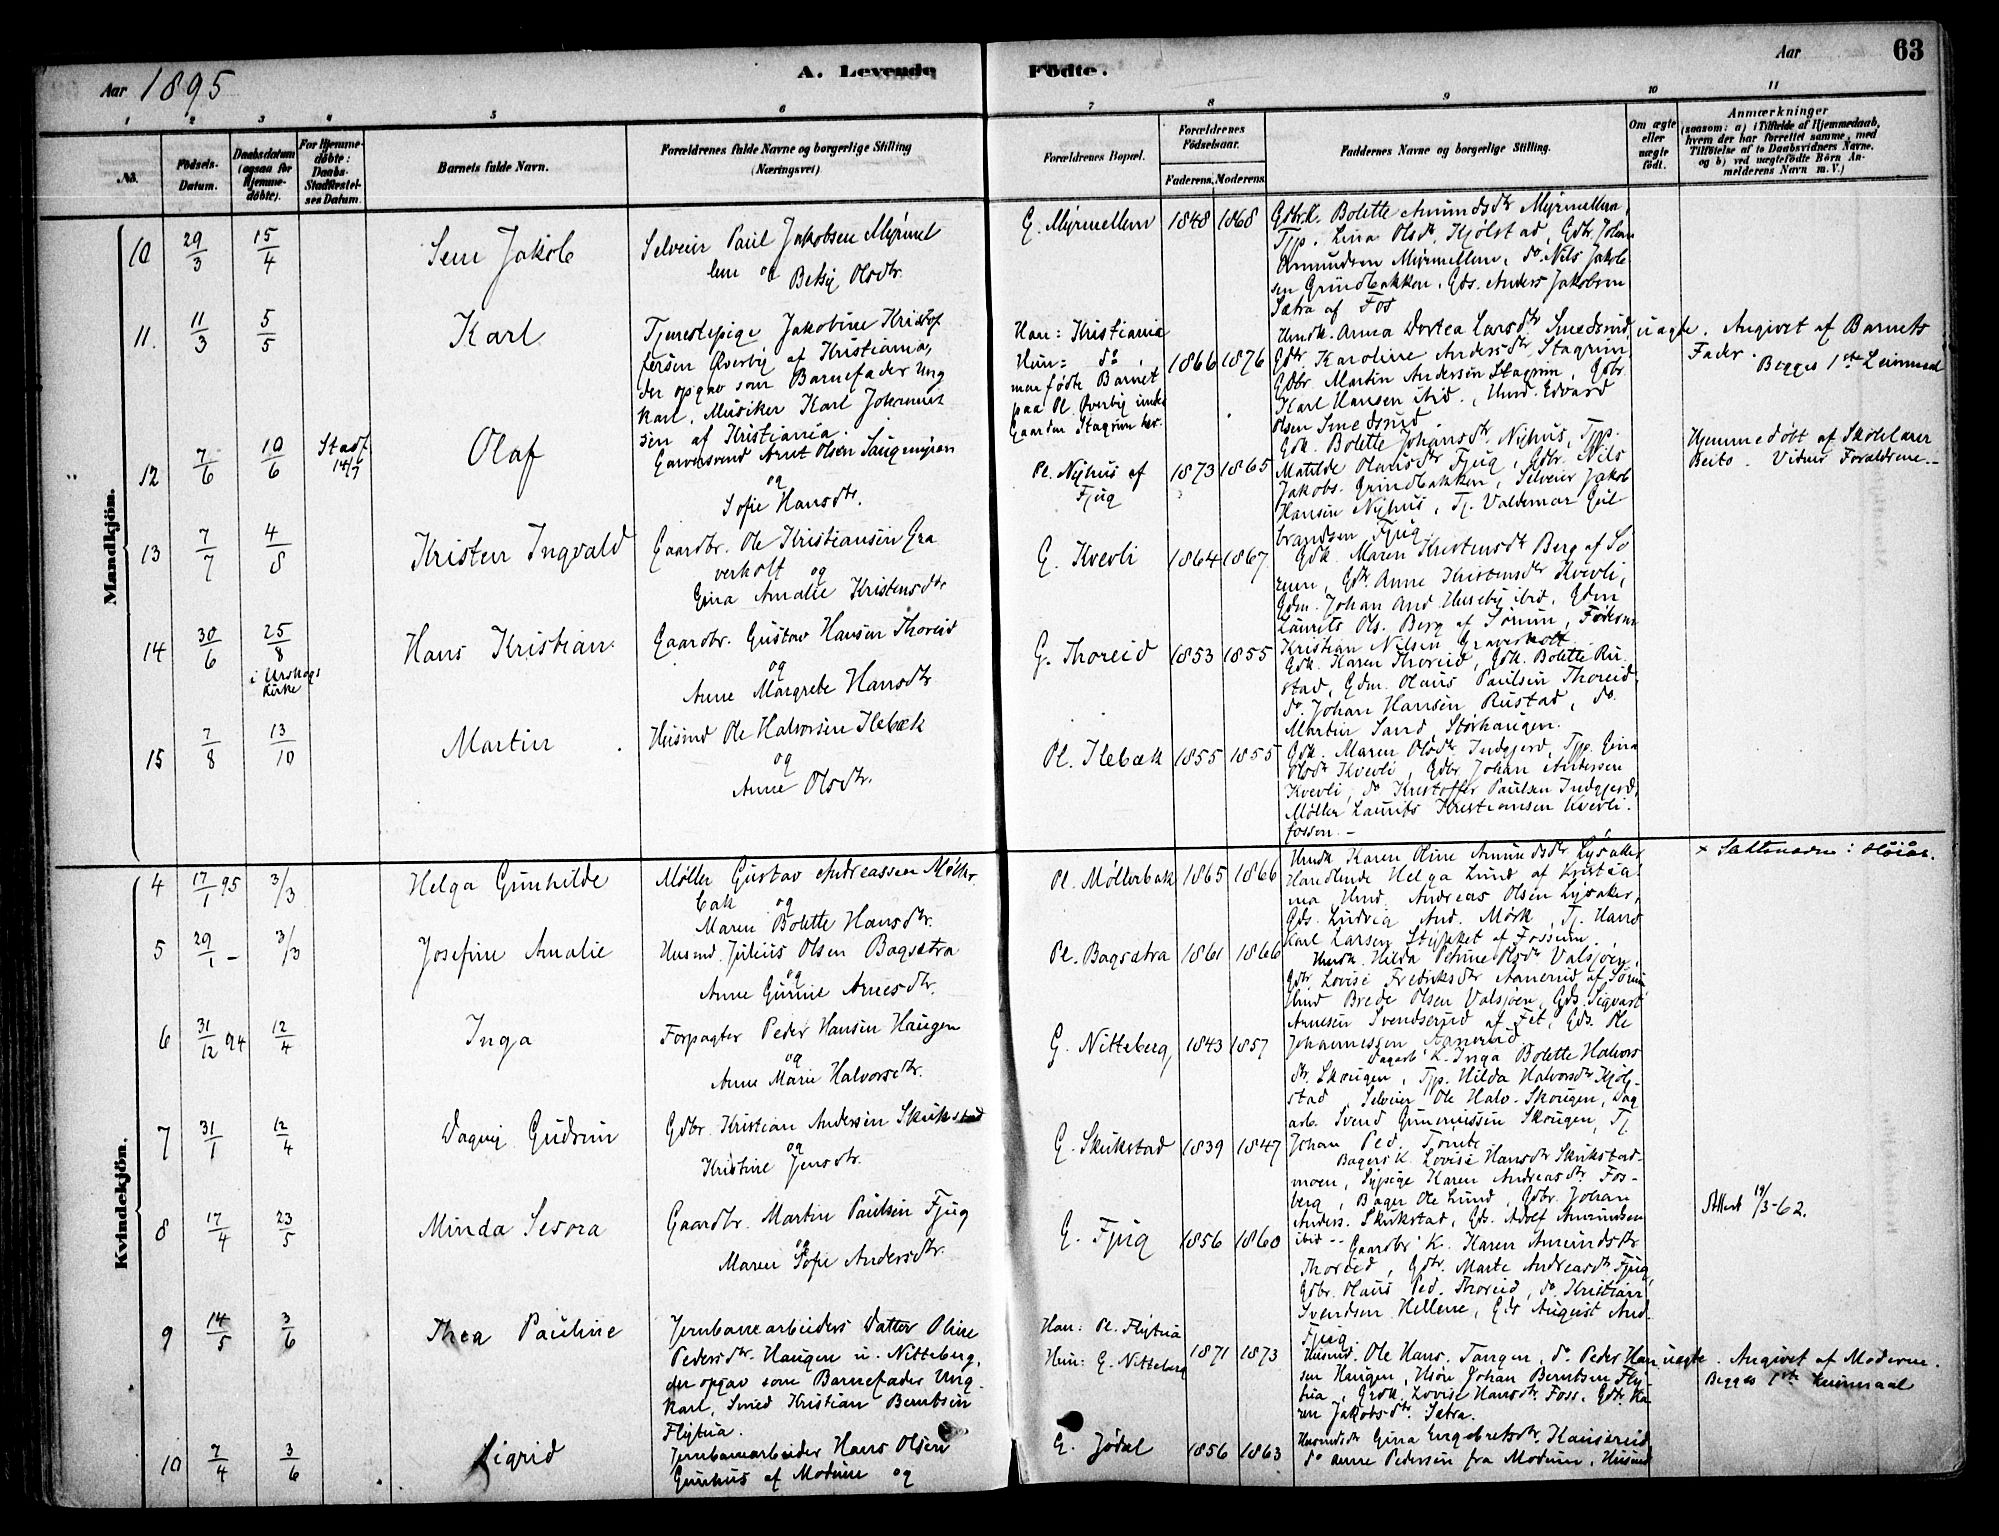 Aar 1895
A. Levende Födte.
Aar
63
1 2 3 4 5 6 7 8 9 10 11
No.
Födsels-Datum.
Daabsdatum (ogsaa for Hjemmedøbte).
For Hjemmedøbte: Daabs-Stadfæstelses Datum.
Barnets fulde Navn.
Forældrenes fulde Navne og borgerlige Stilling (Næringsvei)
Forældrenes Bopæl.
Forældrenes Födselsaar.
Faderens. Moderens.
Faddernes Navne og borgerlige Stilling.
Om ægte eller uægte födt.
Anmærkninger
(saasom: a) i Tilfælde af Hjemmedaab, hvem der har forrettet samme, med Tilföielse af to Daabsvidners Navne, og b) ved uægtefödte Börn Anmelderens Navn m. V.)
Mandkjön.
10 29/3 15/4 Sem Jakob
Selveier Paul Jakobsen Myrmel
lem og Betsy Olsdtr.
G. Myrmellem 1848 1868
Gdbrk. Bolette Amundsdtr Myrmellem,
Tjp. Lina Olsdtr. Kjølstad, Gdbr Johan
Amundsen Myrmellem, do Nils Jakob
sen Grindbakken, Gds. Anders Jakobsen
Sætra af Fos
11. 11/3 5/5 Karl
Tjenestepige Jakobine Kristof
fersen Øverby af Kristiania,
der opgav som Barnefader Ung
karl, Musiker Karl Johannes
sen af Kristiania.
Han: Kristiania
Hun: do,
men fødte Barnet
paa Pl. Øverby under
Gaarden Stagrim her.
1866 1876
Husmk. Anna Dortea Larsdtr Smedsrud,
Gdtr. Karoline Andersdtr Stagrim,
Gdbr. Martin Andersen Stagrim, Gdbr.
Karl Hansen ibid., Husmd. Edvard
Olsen Smedsrud
uægte. Angivet af Barnets
Fader.
Begges 1ste Leiermaal
12 7/6 10/6 Stadf 14/7 Olaf
Garversvend Arnt Olsen Saugmyren
og
Sofie Hansdtr.
Pl. Nyhus af
Fjug
1873 1865
Gdk. Bolette Johansdtr. Nyhus, Tjp.
Matilde Olausdtr Fjug, Gdbr. Nils
Jakobs. Grindbakken, Selveier Jakob
Hansen Nyhus, Tj. Valdemar Gul
brandsen Fjug.
Hjemmedøbt af Skolelærer
Beito. Vidner Forældrene.-
13 7/7 4/8 Kristen Ingvald
Gaardbr. Ole Kristiansen Gra
verholt og
Gina Amalie Kristensdtr
G. Kvevli 1864 1867
Gdk. Maren Kristensdtr Berg af Sø
rum, Gdtr. Anne Kristensdtr Kvevli,
Gdm. Johan And. Huseby ibid, Gdm
Laurits Ols. Berg af Sørum, Føderm
Kristian Nilsen Graverholt
14 30/6 25/8 i Urskogs Kirke Hans Kristian.
Gaardbr. Gustav Hansen Thoreid
og
Anne Margrete Hansdtr
G. Thoreid 1853 1855
Gdk. Karen Thoreid, Gdk. Bolette Ru
stad, Gdm. Olaus Paulsen Thoreid,
do. Johan Hansen Rustad, do.
Martin Sand, Storhaugen.
15 7/8 13/10 Martin.
Husmd Ole Halvorsen Ilebæk
og
Anne Olsdtr.
Pl. Ilebæk 1855 1855
Gdk. Maren Olsdtr Indgjerd, Tjp. Gina
Olsdtr Kvevli, Gdbr Johan Andersen
Kvevli, do Kristoffer Paulsen Indgjerd,
Møller Laurits Kristiansen Kvevli-
fossen.-
Kvindekjön.
4 17/1 95 3/3 Helga Gunhilde
Møller Gustav Andreassen Møller
bak og
Maren Bolette Hansdtr.
Pl. Møllerbak 1865 1866
Husmk Karen Oline Amundsdtr Lysaker,
Handlende Helga Lund af Kristia
nia Husmd. Andreas Olsen Lysaker,
Gds. Ludvig And. Mørk, Tj. Hans
Karl Larsen Stykket af Fossum.
5 29/1 - 3/3 Josefine Amalie
Husmd. Julius Olsen Bagsætra
og
Anne Gurine Arnesdtr.
Pl. Bagsætra 1861 1866
Husmk. Hilda Petrine Olsdtr Valsjøen,
Gdtr. Lovise Fredriksdtr Aanerud af Sørum
Husmd Brede Olsen Valsjøen, Gds. Sigvart
Arnesen Svendserud af Fet, Gds. Ole
Johannessen Aanerud
6 31/12 94 12/4 Inga
Forpagter Peder Hansen Haugen
og
Anne Marie Halvorsdtr.
G. Nitteberg, 1843 1857
Dagarb. K. Inga Bolette Halvors
dtr. Skougen, Tjp. Hilda Halvorsdtr Kjøl-
stad, Selveier Ole Halv. Skougen, Dag
arb. Svend Gunerussen Skougen, Tj.
Johan Ped. Tomte
7 31/1 12/4 Dagny Gudrun
Gdbr. Kristian Andersen Skukstad
og
Kristine Jensdtr.
G. Skukstad 1839 1847
Bagers K Lovise Hansdtr Skukstad-
moen, Sypige Karen Andreasdtr Fos-
berg, Bager Ole Lund, Gdbr. Johan
Anders. Skukstad, Gds. Adolf Amundsen
ibid --
8 17/4 23/5 Minda Sesora
Gaardbr. Martin Paulsen Fjug
og
Maren Sofie Andersdtr.
G. Fjug 1856 1860
Gaardbr K. Karen Amundsdtr
Thoreid, Gdtr. Marte Andreasdtr Fjug,
Gdbr. Olaus Ped. Thoreid, do. Kristian
Svendsen Hellene, Gds August And.
Fjug
Attest 19/3-62.
9 14/5 3/6 Thea Pauline
Jernbanearbeiders Datter Oline
Pedersdtr. Haugen u. Nitteberg,
der opgav som Barnefader Ung-
karl, Smed Kristian Berntsen
Flytua.
Han: Pl. Flytua
Hun: G. Nitteberg
1871 1873
Husmd. Ole Hans. Tangen, do. Peder Han
sen Haugen, Johan Berntsen Fly-
tua, Gdk. Lovise Hansdtr. Foss, Gdtr. Ka
ren Jakobsdtr. Sætra.
uægte. Angivet af Moderen.
Begges 1ste Leiermaal
10 7/4 3/6 Sigrid
Jernbanearbeider Hans Olsen
Gunhus af Modum og
G. Jødal 1856 1863
Husmdsdtr Gina Engebretsdtr. Kauserud
do Anne Pedersen fra Modum, Husmd